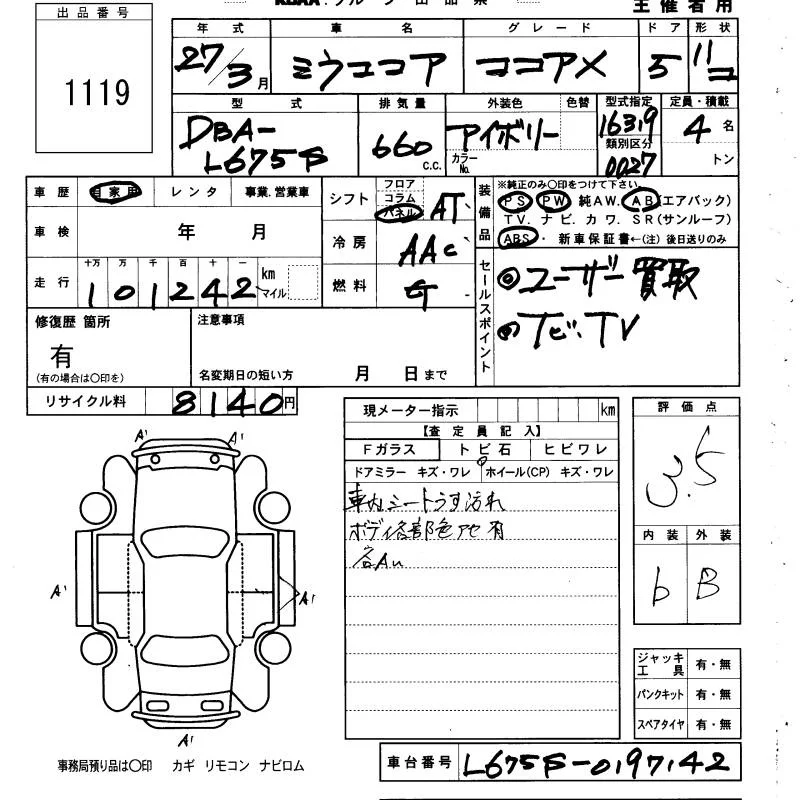 KCAA.グループ出品票
主催者用
出品番号
1119
年式 車名 グレード ドア 形状
27/3月 ミラココア ココアX 5 11コ
型式 排気量 外装色 色替 型式指定 定員・積載
DBA-L675S 660 C.C. アイボリー カラーNo. 16319 類別区分 0027 4名 トン
車歴 自家用 レンタ 事業.営業車
車検 年 月
走行 十万 万 千 百 十 一 km マイル
101242
シフト フロア コラム パネル AT
冷房 AAC
燃料 G
装備品 ※純正のみ〇印をつけて下さい
PS PW 純AW. AB(エアバック)
TV. ナビ. カワ. SR(サンルーフ)
ABS・ 新車保証書←(注) 後日送りのみ
セールスポイント
◎ユーザー買取
ナビ.TV
修復歴 箇所
有
(有の場合は〇印を)
注意事項
名変期日の短い方 月 日まで
リサイクル料 8140円
現メーター指示 km
【査定員記入】
Fガラス トビ石 ヒビワレ
ドアミラー キズ・ワレ ホイール(CP) キズ・ワレ
車内シートうす汚れ
ボディ各部色アセ有
各AU
評価点
3.5
内装 外装
b B
A' A'
A' A'
A'
ジャッキ工具 有・無
パンクキット 有・無
スペアタイヤ 有・無
事務局預り品は〇印 カギ リモコン ナビロム
車台番号 L675S-0197142